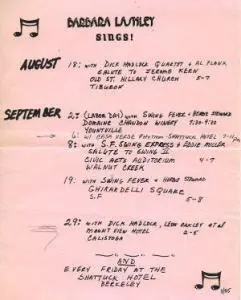 BARBARA LASHLEY
SINGS!
AUGUST 18: WITH DICK HADLOCK QUARTET & AL PLANK
SALUTE TO JEROME KERN
OLD ST. HILLARY CHURCH 5-7
TIBURON
SEPTEMBER 2: (LABOR DAY) WITH SWING FEVER + HERBIE STEWARD
DOMAINE CHANDON WINERY
YOUNTVILLE
6: W/ CASA VERDE RHYTHM - SHATTUCK HOTEL
8: WITH S.F. SWING EXPRESS & EDDIE MILLER
SALUTE TO SWING II
CIVIC ARTS AUDITORIUM 4-7
WALNUT CREEK
19: WITH SWING FEVER + HERBIE STEWARD
GHIRARDELLI SQUARE
S.F 5-8
29: WITH DICK HADLOCK, LEON OAKLEY ET AL
MOUNT VIEW HOTEL 2-5
CALISTOGA
AND
EVERY FRIDAY AT THE
SHATTUCK HOTEL
BERKELEY